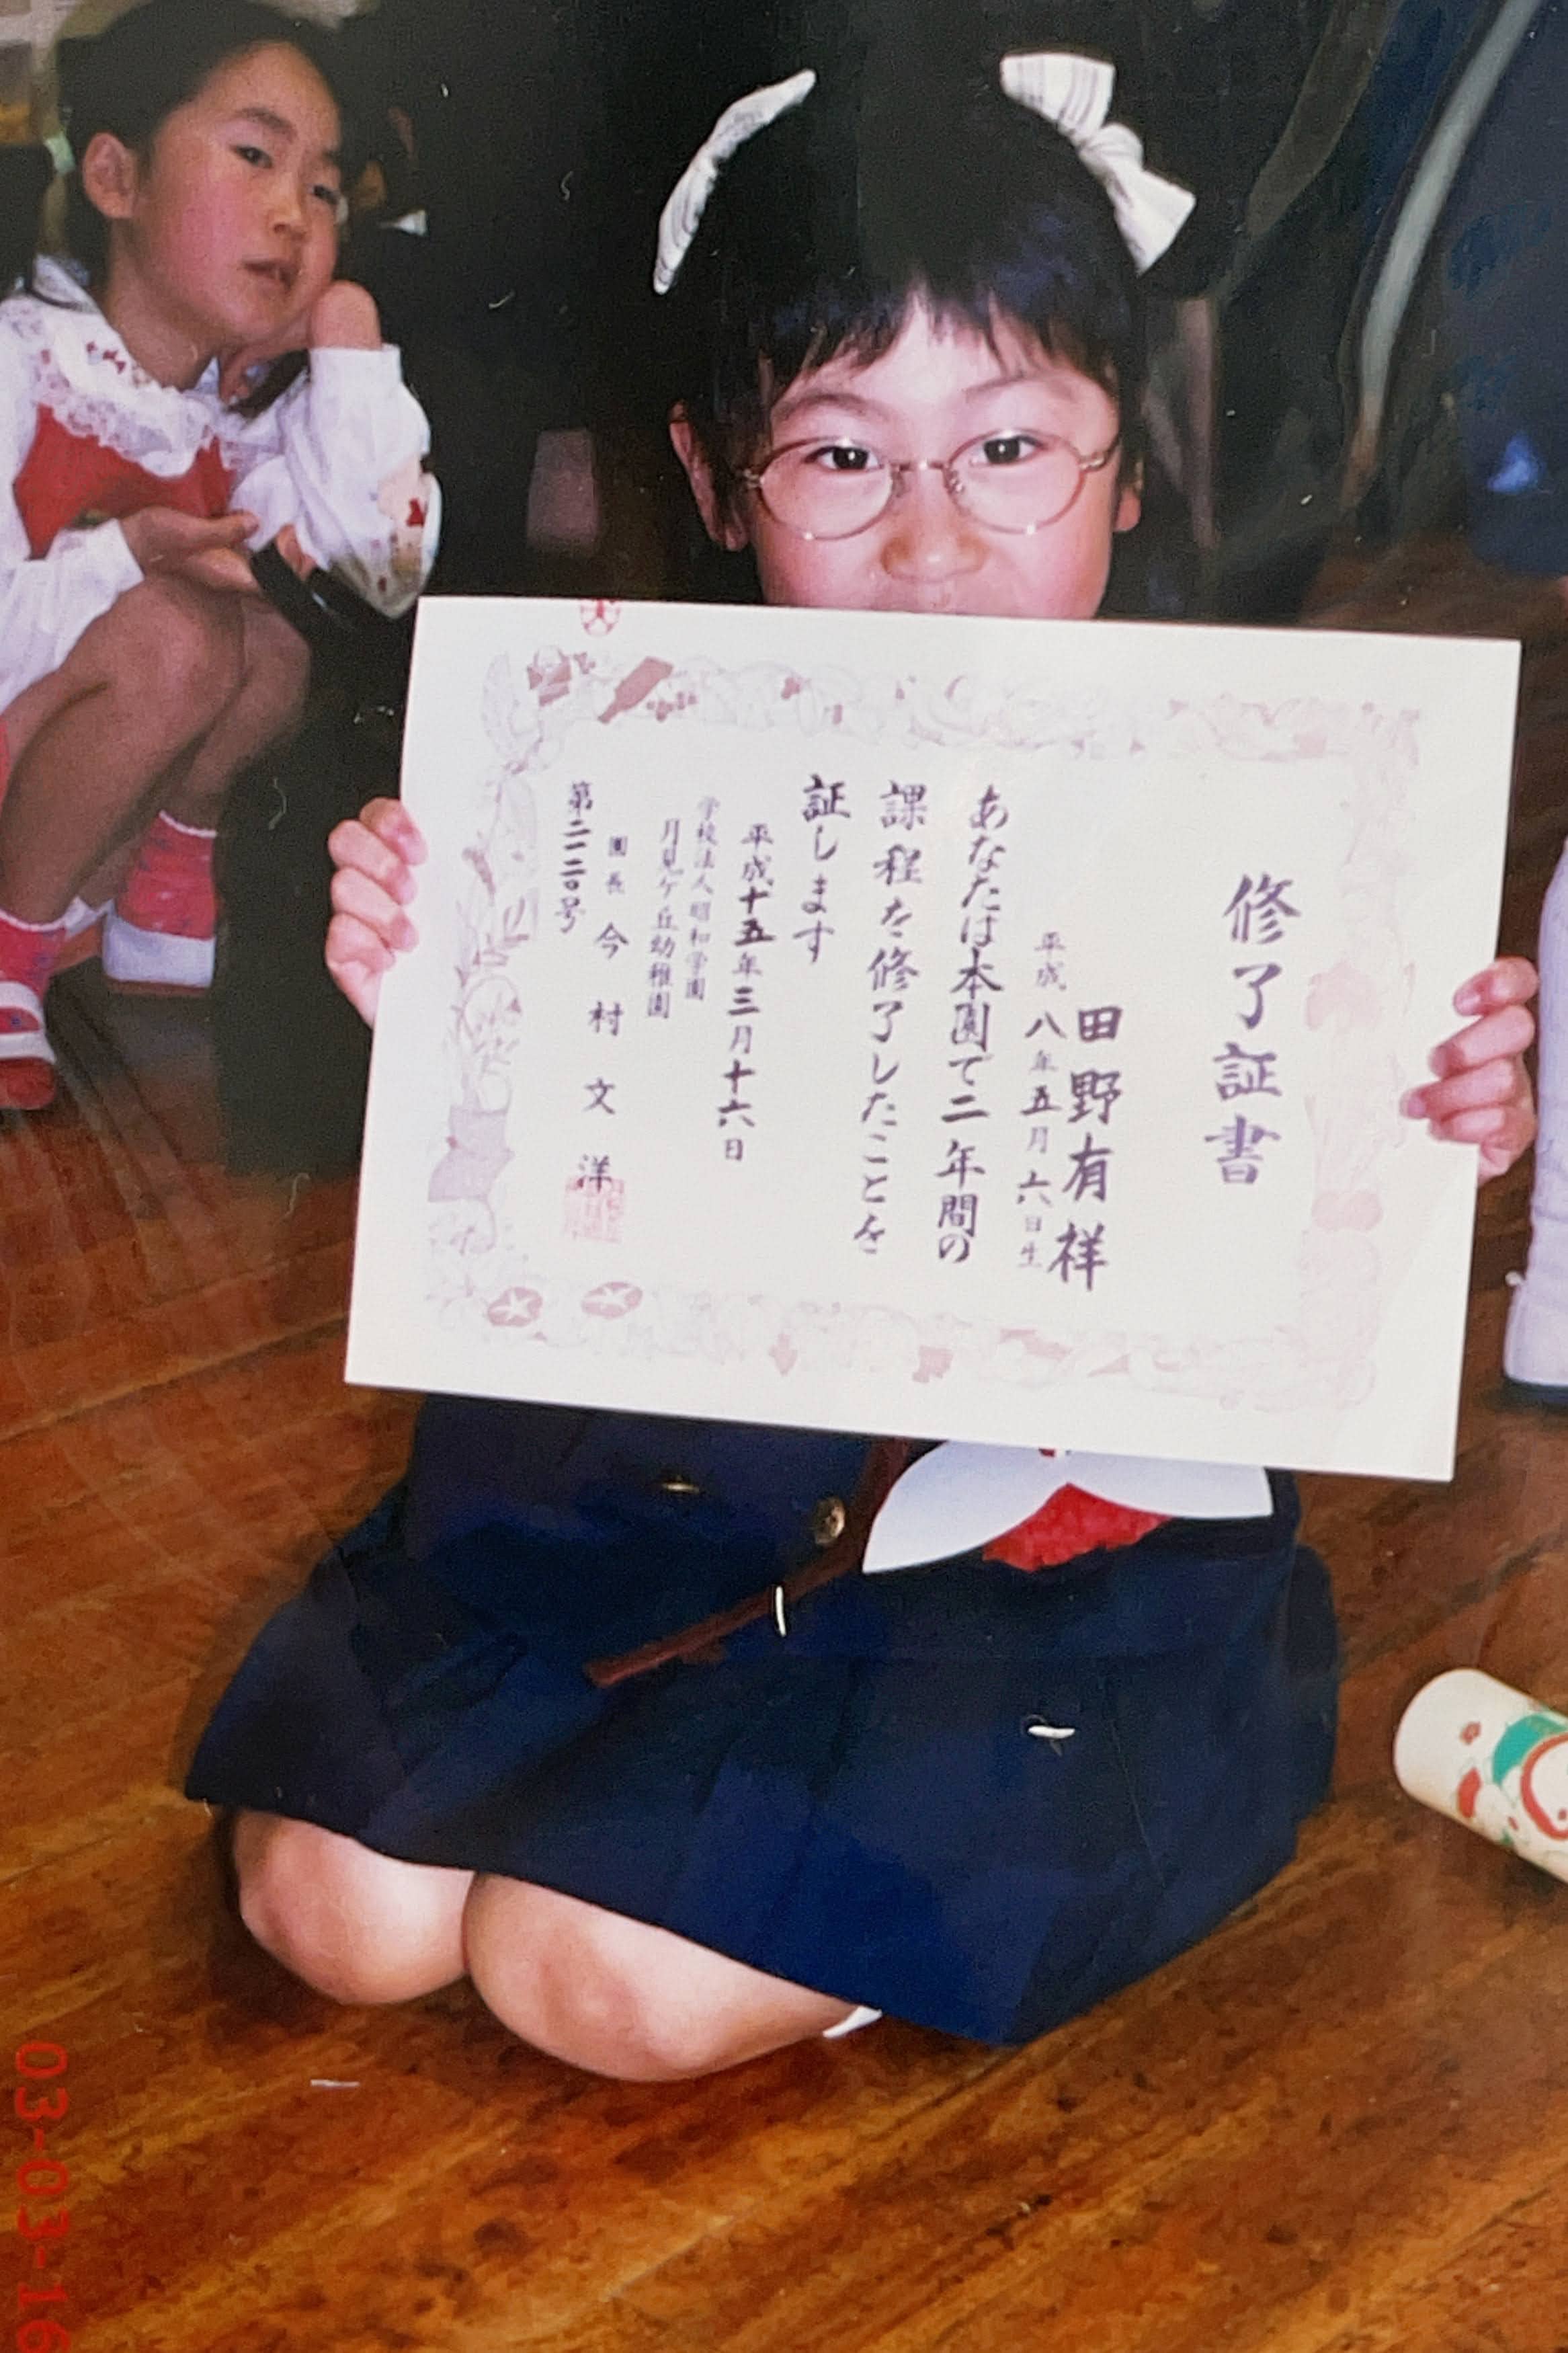 修了証書
田野有祥
平成八年五月六日生
あなたは本園で二年間の
課程を修了したことを
証します
平成十五年三月十六日
学校法人昭和学園
月見ケ丘幼稚園
園長 今村文洋
第二一二〇号
03-03-16